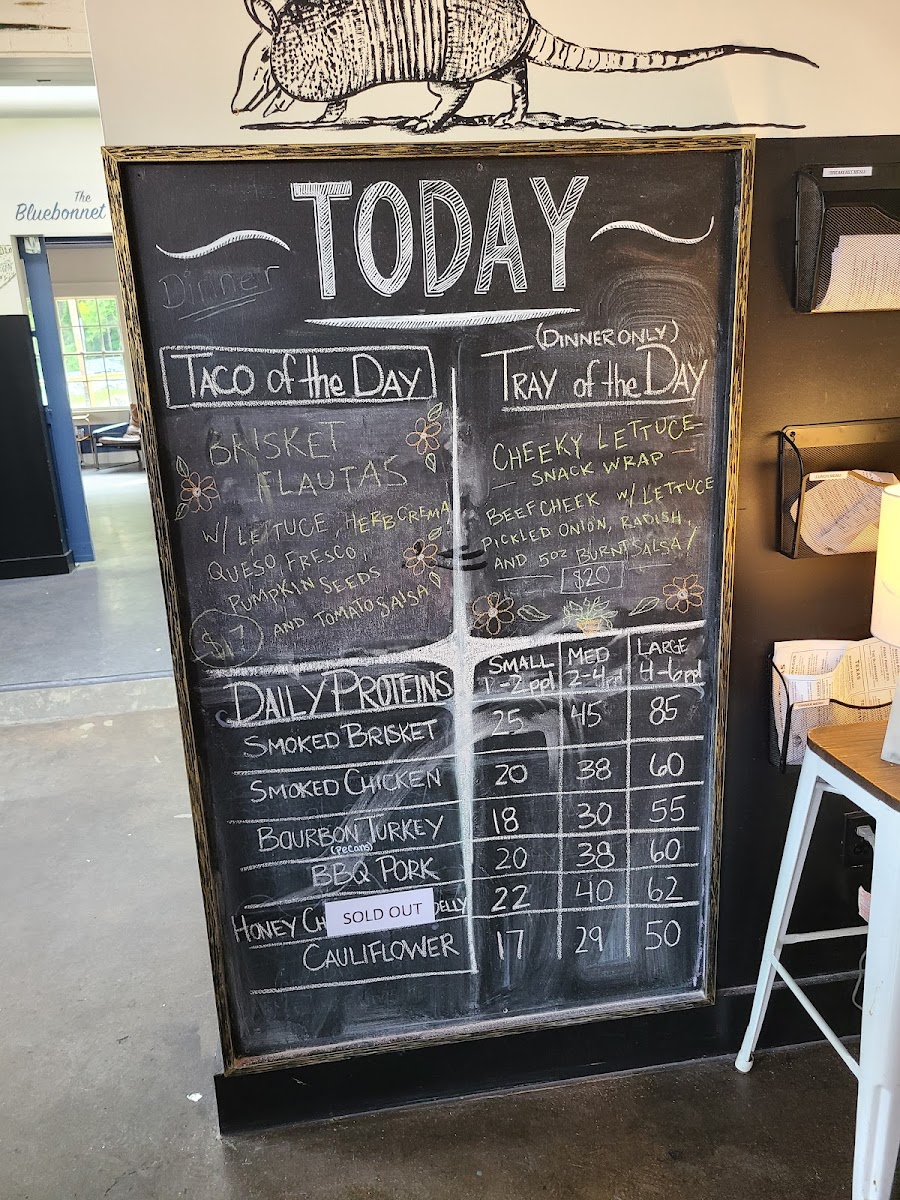 The
Bluebonnet
TODAY
Dinner
TACO of the DAY
BRISKET
FLAUTAS
W/ LETTUCE, HERB CREMA
QUESO FRESCO,
PUMPKIN SEEDS
AND TOMATO SALSA
$17
(DINNER ONLY)
TRAY of the DAY
CHEEKY LETTUCE
SNACK WRAP
BEEF CHEEK W/ LETTUCE
PICKLED ONION, RADISH,
AND 5oz BURNT SALSA!
$20
DAILY PROTEINS SMALL 1-2 ppl MED 2-4 ppl LARGE 4-6 ppl
SMOKED BRISKET 25 45 85
SMOKED CHICKEN 20 38 60
BOURBON TURKEY 18 30 55
(pecans)
BBQ PORK 20 38 60
HONEY SOLD OUT 22 40 62
CAULIFLOWER 17 29 50